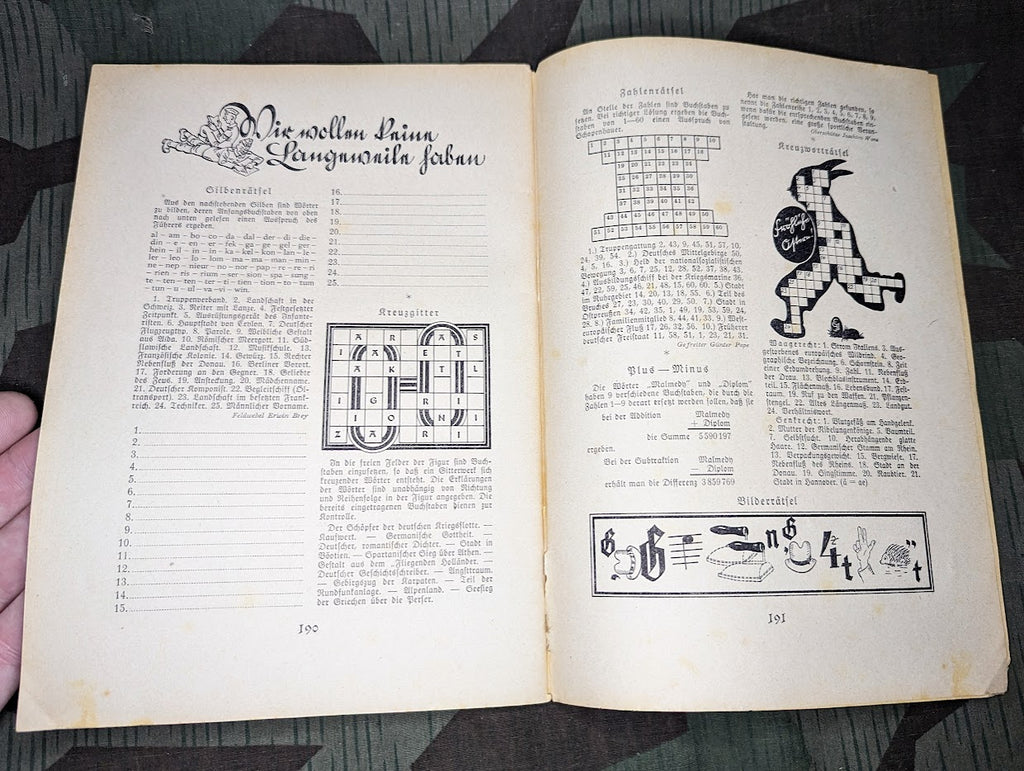 Wir wollen keine
Langeweile haben
Silbenrätsel
Aus den nachstehenden Silben sind Wörter
zu bilden, deren Anfangsbuchstaben von oben
nach unten gelesen einen Ausspruch des
Führers ergeben.
al – am – bo – co – da – dal – der – di – die –
din – e – en – er – fek – ga – ge – gel – ger –
hein – il – in – in – ka – kel – kon – lan – le –
ler – leo – lo – lom – ma – ma – man – min –
ne – nep – nieur – no – nor – pap – re – re – ri
– rien – ris – rium – ser – sion – spa – sung –
te – ten – ten – ter – ti – tien – tion – to – tum
– tun – u – ul – va – vi – win.
1. Truppenverband. 2. Landschaft in der
Schweiz. 3. Reiter mit Lanze. 4. Festgesetzter
Zeitpunkt. 5. Ausrüstungsgerät des Infante-
risten. 6. Hauptstadt von Ceylon. 7. Deutscher
Flugzeugtyp. 8. Parole. 9. Weibliche Gestalt
aus Aida. 10. Römischer Meergott. 11. Süd-
slawische Landschaft. 12. Musikschule. 13.
Französische Kolonie. 14. Gewürz. 15. Rechter
Nebenfluß der Donau. 16. Berliner Vorort.
17. Forderung an den Gegner. 18. Geliebte
des Zeus. 19. Ansteckung. 20. Mädchenname.
21. Deutscher Komponist. 22. Begleitschiff (Öl-
transport). 23. Landschaft im besetzten Frank-
reich. 24. Techniker. 25. Männlicher Vorname.
Feldwebel Erwin Brey
1.
2.
3.
4.
5.
6.
7.
8.
9.
10.
11.
12.
13.
14.
15.
16.
17.
18.
19.
20.
21.
22.
23.
24.
25.
*
Kreuzgitter
A R A S
I A R E T S
I A K T L
I G R I
I O N I
Z A R I
In die freien Felder der Figur sind Buch-
staben einzusetzen, so daß ein Gitterwerk sich
kreuzender Wörter entsteht. Die Erklärungen
der Wörter sind unabhängig von Richtung
und Reihenfolge in der Figur angegeben. Die
bereits eingetragenen Buchstaben dienen zur
Kontrolle.
Der Schöpfer der deutschen Kriegsflotte. —
Kaufwert. — Germanische Gottheit. —
Deutscher, romantischer Dichter. — Stadt in
Böotien. — Spartanischer Sieg über Athen. —
Gestalt aus dem „Fliegenden Holländer. —
Deutscher Geschichtsschreiber. — Angsttraum.
— Gebirgszug der Karpaten. — Teil der
Rundfunkanlage. — Alpenland. — Seesieg
der Griechen über die Perser.
190
Zahlenrätsel
An Stelle der Zahlen sind Buchstaben zu
setzen. Bei richtiger Lösung ergeben die Buch-
staben von 1—60 einen Ausspruch von
Schopenhauer.
1 2 3 4 5 6 7 8 9 10
11 12 13 14 15 16 17 18
19 20 21 22 23 24
25 26 27 28 29 30
31 32 33 34 35 36
37 38 39 40 41 42
43 44 45 46 47 48 49 50
51 52 53 54 55 56 57 58 59 60
1.) Truppengattung 2, 43, 9, 45, 51, 57, 10,
24, 39, 54. 2.) Deutsches Mittelgebirge 50,
4, 5, 16. 3.) Held der nationalsozialistischen
Bewegung 3, 6, 7, 25, 12, 28, 52, 37, 38, 43.
4.) Ausbildungsschiff bei der Kriegsmarine 36,
47, 22, 59, 25, 46, 21, 48, 15, 60. 5.) Stadt
im Ruhrgebiet 14, 20, 13, 18, 55. 6.) Teil des
Bruches 27, 23, 30, 40, 29, 50. 7.) Stadt in
Ostpreußen 34, 42, 35, 1, 49, 19, 53, 59, 24,
28. 8.) Familienmitglied 8, 44, 41, 33. 9.) West-
europäischer Fluß 17, 26, 32, 56. 10.) Früherer
deutscher Freistaat 11, 58, 51, 1, 23, 21, 31.
Gefreiter Günter Pape
*
Plus — Minus
Die Wörter „Malmedy“ und „Diplom“
haben 9 verschiedene Buchstaben, die durch die
Zahlen 1—9 derart ersetzt werden sollen, daß sie
bei der Addition Malmedy
+ Diplom
die Summe 5590197
ergeben.
Bei der Subtraktion Malmedy
— Diplom
erhält man die Differenz 3859769
Hat man die richtigen Zahlen gefunden, so
nennt die Zahlenreihe 1, 2, 3, 4, 5, 6, 7, 8, 9,
wenn dafür die entsprechenden Buchstaben ein-
gesetzt werden, eine große sportliche Veran-
staltung.
Kreuzworträtsel
Fröhliche
Ostern!
Waagerecht: 1. Strom Italiens. 3. Aus-
gestorbenes europäisches Wildrind. 4. Geo-
graphische Bezeichnung. 6. Schornstein. 8. Zeit
einer Erdumdrehung. 9. Zahl. 11. Nebenfluß
der Drau. 13. Blechblasinstrument. 14. Erd-
teil. 15. Flächenmaß. 16. Lebensbund. 17. Fest-
raum. 19. Ruf zu den Waffen. 21. Pflanzen-
stengel. 22. Altes Längenmaß. 23. Landgut.
24. Verhältniswort.
Senkrecht: 1. Blutgefäß am Handgelenk.
2. Mutter der Nibelungenkönige. 5. Baumteil.
7. Selbstsucht. 10. Herabhängende glatte
Haare. 12. Germanischer Stamm am Rhein.
13. Verpackungsgewicht. 15. Bergwiese. 17.
Nebenfluß des Rheins. 18. Stadt an der
Donau. 19. Singstimme. 20. Raubtier. 21.
Stadt in Hannover. (ä = ae)
Bilderrätsel
191